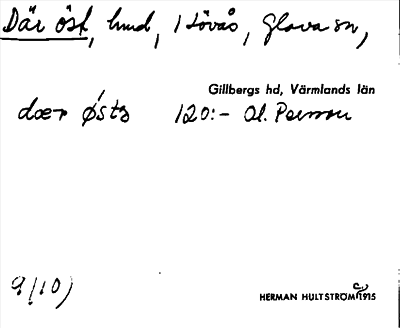 Där öst, hmd, 1 Hövås, Glava sn,
Gillbergs hd, Värmlands län
dær østa 120:- Al. Persson
9/10)
HERMAN HULTSTRÖM 1915